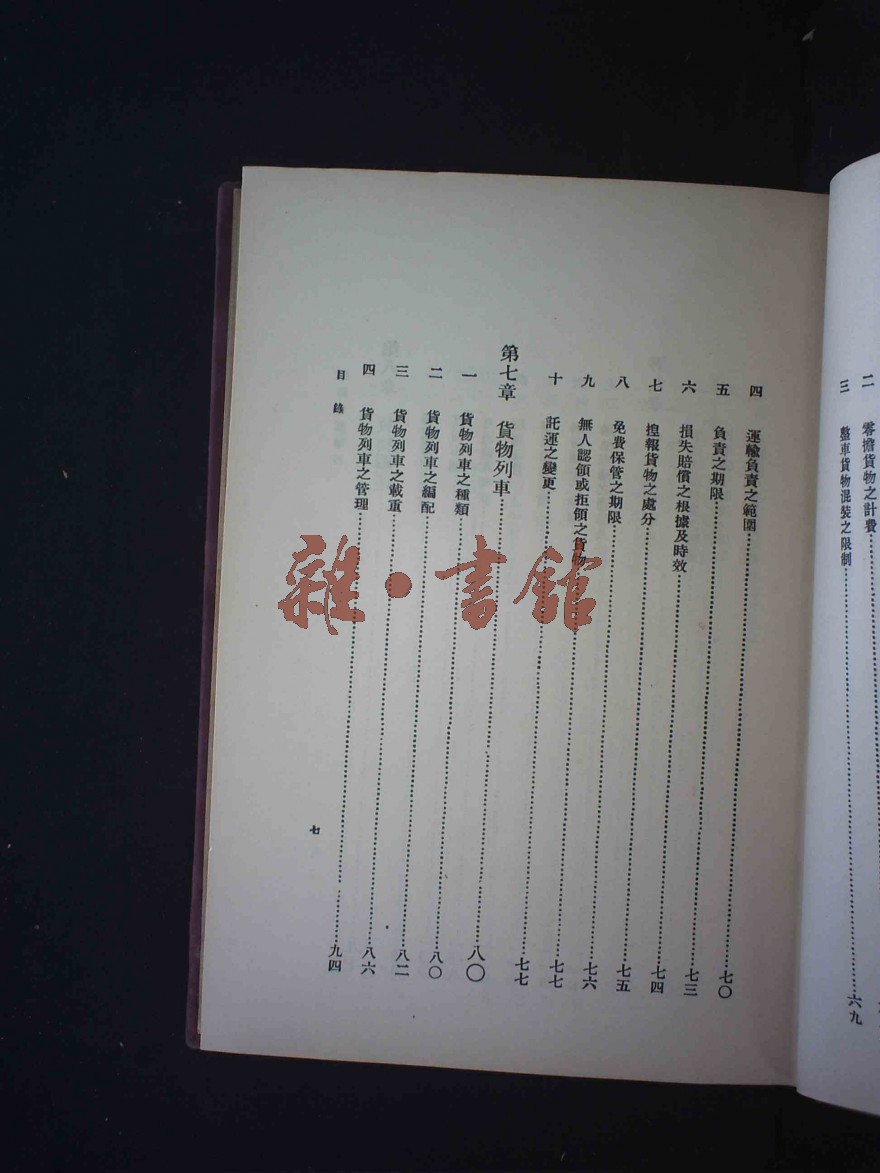 二 零擔貨物之計費
三 整車貨物混裝之限制……六九
四 運輸負責之範圍……七〇
五 負責之期限……七三
六 損失賠償之根據及時效……七四
七 揑報貨物之處分……七五
八 免費保管之期限……七六
九 無人認領或拒領之貨物……七七
十 託運之變更……七七
第七章 貨物列車……八〇
一 貨物列車之種類……八〇
二 貨物列車之編配……八二
三 貨物列車之載重……八六
四 貨物列車之管理……九四
目錄
七
雜·書館